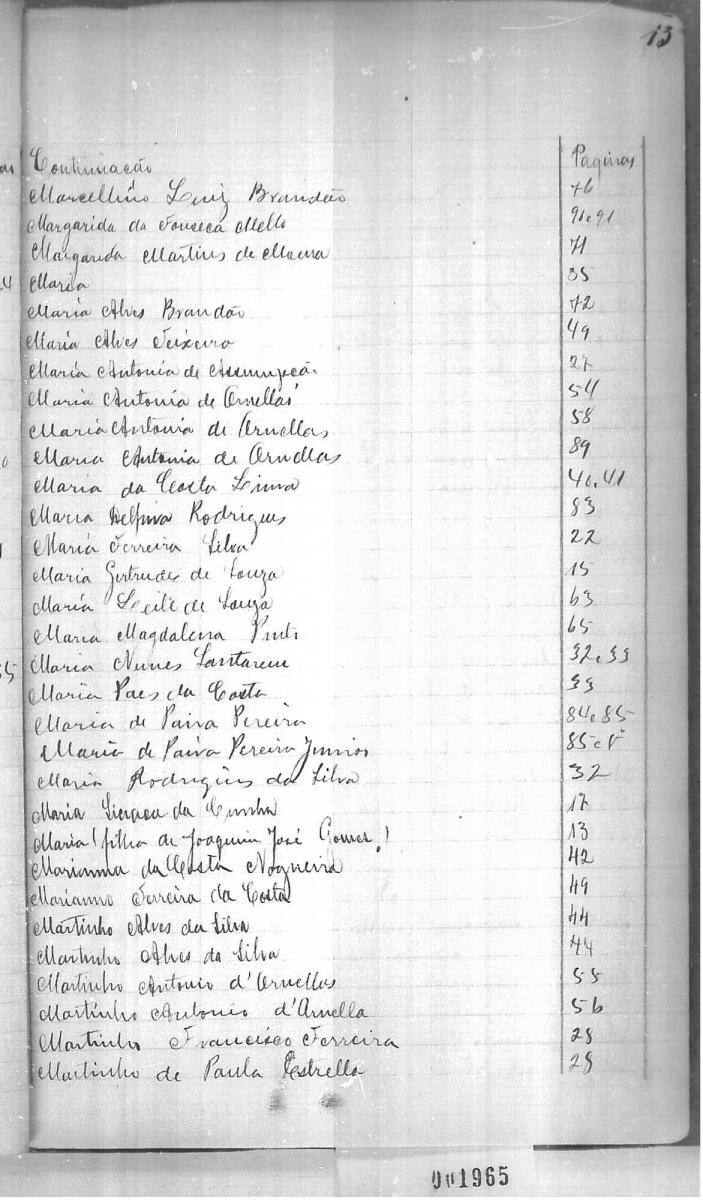 13
Continuação Paginas
Marcellino Luiz Brandão 76
Margarida da Fonseca Mello 91 e 91
Margarida Martins de Moema 71
Maria 35
Maria Alves Brandão 72
Maria Alves Teixeira 49
Maria Antonia de Assumpção 27
Maria Antonia de Ornellas 54
Maria Antonia de Ornellas 58
Maria Antonia de Ornellas 89
Maria da Costa Lima 40.41
Maria Delfina Rodrigues 83
Maria Ferreira Silva 22
Maria Gertrudes de Souza 15
Maria Leite de Souza 63
Maria Magdalena Pinto 65
Maria Nunes Santarem 32.33
Maria Paes da Costa 33
Maria de Paiva Pereira 84 e 85
Maria de Paiva Pereira Junior 85 e Vº
Maria Rodrigues da Silva 32
Maria da Cunha 17
Maria (filha de Joaquim José Gomes) 13
Marianna da Costa Nogueira 42
Marianno Ferreira da Costa 49
Martinho Alves da Silva 44
Martinho Alves da Silva 44
Martinho Antonio d'Ornellas 55
Martinho Antonio d'Ornella 56
Martinho Francisco Ferreira 28
Martinho de Paula Estrella 28
001965